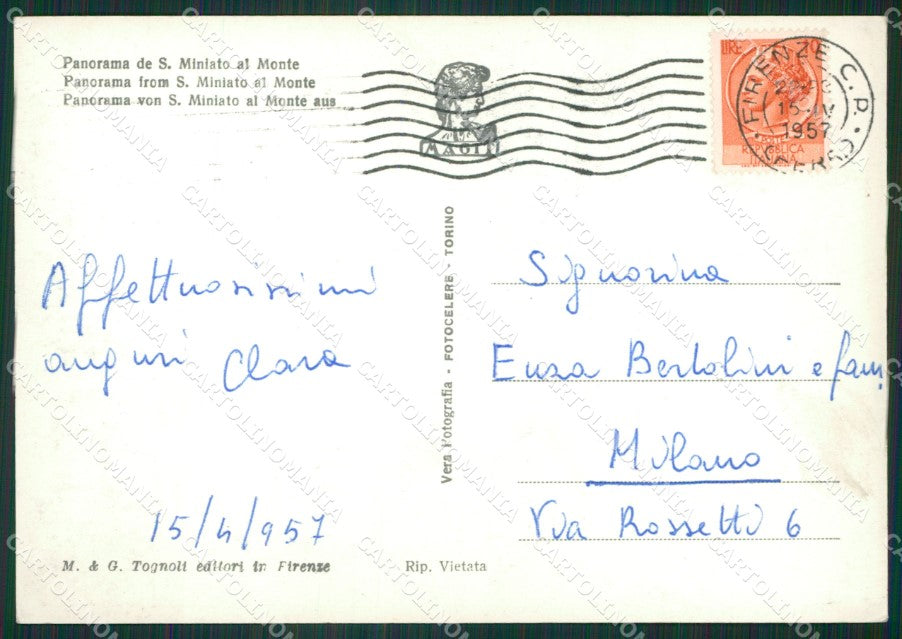 Panorama de S. Miniato al Monte
Panorama from S. Miniato al Monte
Panorama von S. Miniato al Monte aus
MAGIT
LIRE
REPUBBLICA
ITALIANA
FIRENZE C.P.
15 IV
1957
Affettuosissimi
auguri Clara
15/4/957
Vera Fotografia - FOTOCELERE - TORINO
Signorina
Enza Bertolini e fam
Milano
Via Rossetti 6
M. & G. Tognoli editori in Firenze
Rip. Vietata
CARTOLINOMANIA